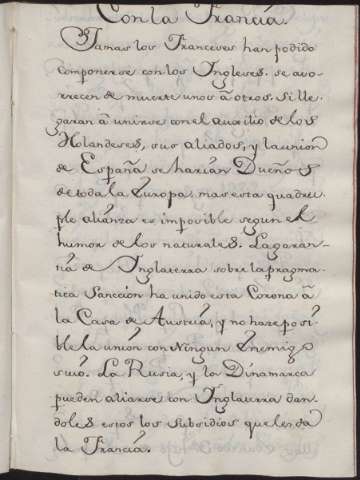 Con la Francia.
Jamas los Franceses han podido
componerse con los Ingleses. se avo-
rrecen de muerte unos â otros. Si lle-
garan â unirse con el auxilio de los
Holandeses, sus aliados, y la union
de España se harian Dueños
de toda la Europa, mas esta quadru-
ple alianza es imposible segun el
humor de los naturales. La garan-
tia de Inglaterra sobre la pragma-
tica Sanccion ha unido esta Corona â
la Casa de Austria, y no hase posi-
ble la union con Ningun Enemigo
suio. La Rusia, y la Dinamarca
pueden aliarse con Inglaterra dan-
doles estos los Subsidios que les da
la Francia.